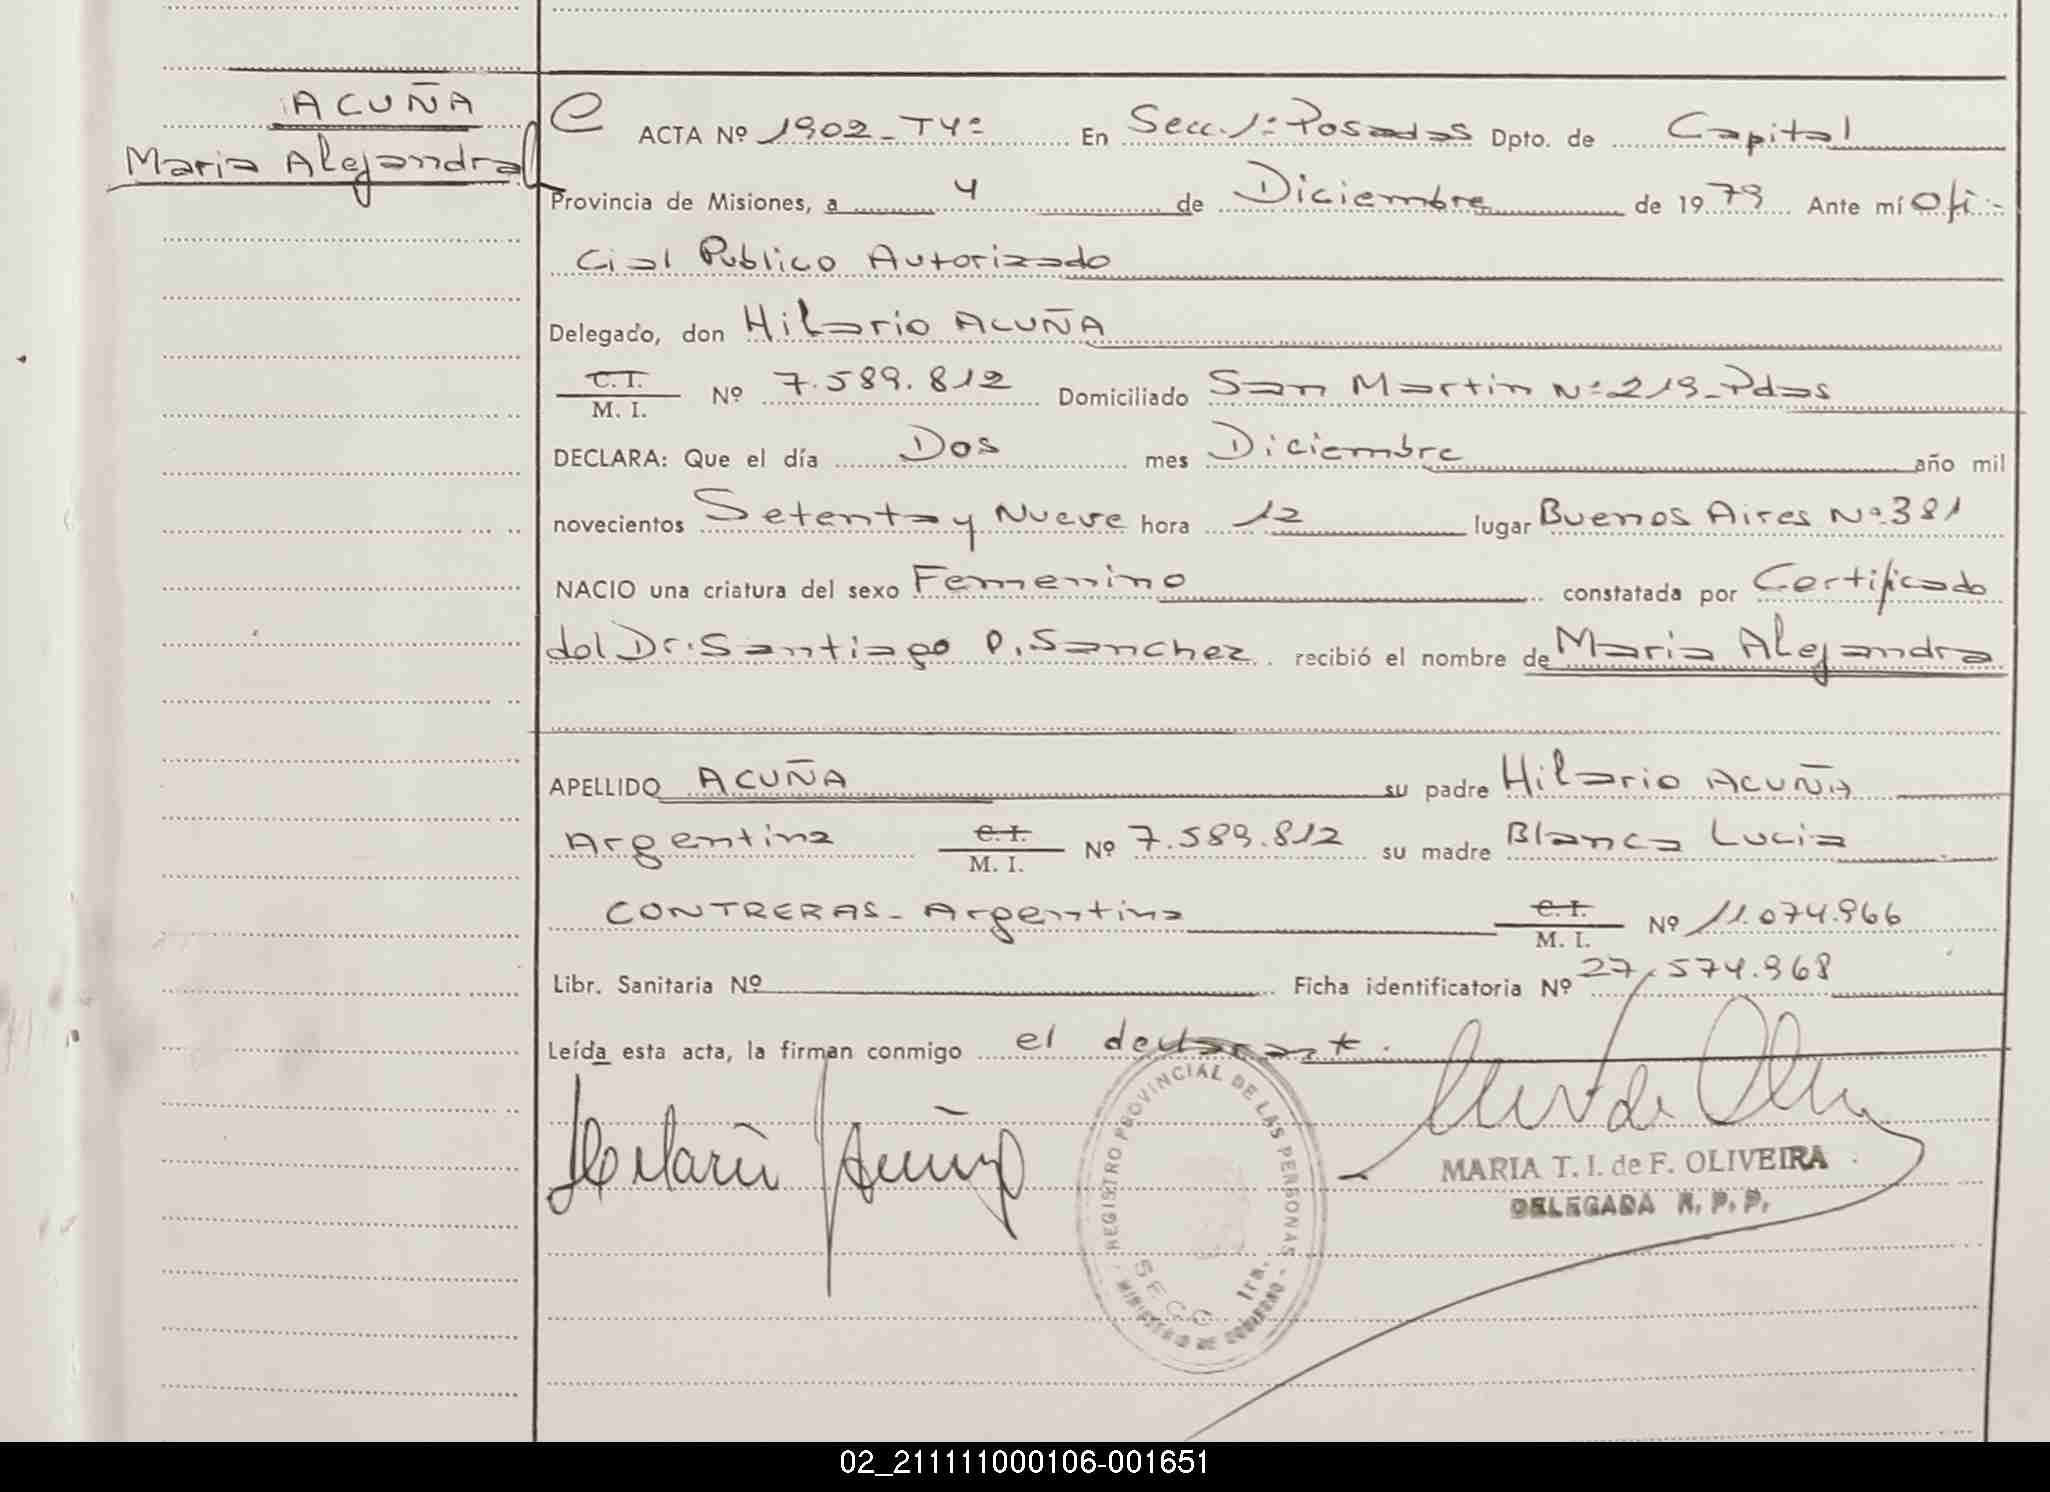 ACUÑA
Maria Alejandra
ACTA Nº 1902-Tº4º En Secc. 1ª Posadas Dpto. de Capital
Provincia de Misiones, a 4 de Diciembre de 1979 Ante mí Ofi-
cial Publico Autorizado
Delegado, don Hilario ACUÑA
C. I.
M. I. Nº 7.589.812 Domiciliado San Martin Nº 213-Pdas
DECLARA: Que el día Dos mes Diciembre año mil
novecientos Setenta y Nueve hora 12 lugar Buenos Aires Nº 381
NACIO una criatura del sexo Femenino constatada por Certificado
del Dr. Santiago P. Sanchez recibió el nombre de Maria Alejandra
APELLIDO ACUÑA su padre Hilario ACUÑA
Argentina C. I.
M. I. Nº 7.589.812 su madre Blanca Lucia
CONTRERAS - Argentina C. I.
M. I. Nº 11.074.966
Libr. Sanitaria Nº Ficha identificatoria Nº 27.574.968
Leída esta acta, la firman conmigo el declarant.
Hilario Acuña
REGISTRO PROVINCIAL DE LAS PERSONAS
SECC 1ra.
MINISTERIO DE GOBIERNO
MARIA T. I. de F. OLIVEIRA
DELEGADA R. P. P.
02_211111000106-001651